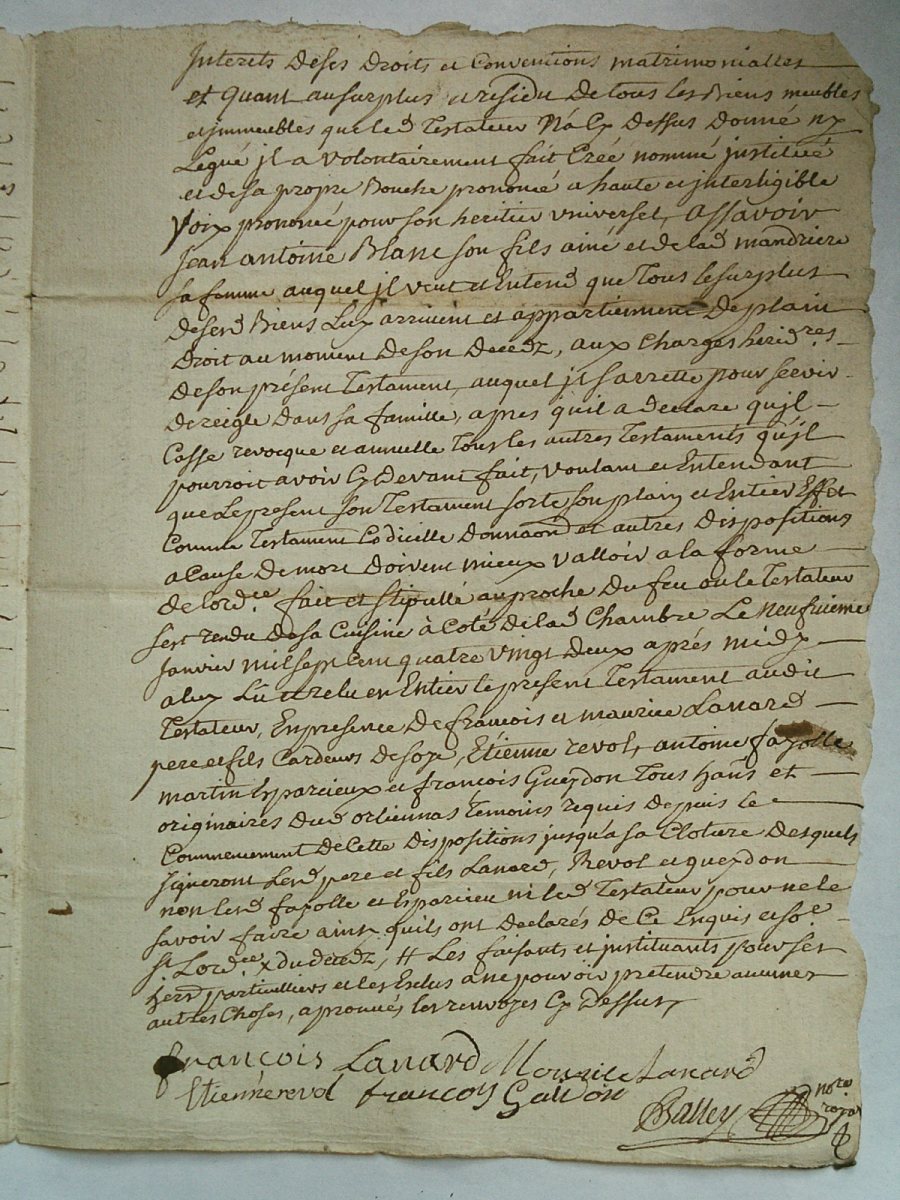 Interets deses droits et Conventions matrimonialles
et quant ausurplus et residu de tous les Biens meubles
et immeubles que led. Testateur N'a Cy dessus donné ny
Legué jl a volontairement fait Creé nommé justitué
et de sa propre Bouche prononcé a haute et jnterligible
Voix prononcé pour son heritier universel, assavoir
Jean antoine Blanc son fils ainé et de lad. mandriere
sa femme auquel jl veut et Entend que tous lesurplus
desesd. Biens Luy arrivent et appartiennent de plain
Droit au moment de son decedz, aux Charges herid.res
de son présent Testament, auquel jl s'arrette pour servir
de reigle dans sa famille, apres qu'il a declare qu'jl
Casse revocque et annuelle tous les autres Testaments qu'jl
pourroit avoir Cy devant fait, voulant et Entendant
que Le present son Testament sorte son plain et Entier Effet
Comme Testament Codicille donnaõn et autres dispositions
a Cause de mort doivent mieux valloir a la forme
de lord.ce fait et stipullé au proche du feu ou le Testateur
s'est rendu de sa Cuisine à Coté de lad. Chambre Le neufvieme
Janvier mil sept Cent quatre vingt deux après midy
a luy Lû et relu en Entier le present Testament audit
Testateur, En presence de françois et maurice Lanard
pere et fils Cardeurs de soye, Etienne revol, antoine fayolle
martin Esparcieux et françois Gueydon tous hañs et
originaires dud. orliennas temoins requis depuis le
Commencement de Cette dispositions jusqu'a sa Cloture desquels
signeront Lesd. pere et fils Lanard, Revol et gueydon
non lesd. fayolle et Esparcieu ni led. Testateur pour ne le
savoir faire ainsy qu'ils ont declarés de Ce Enquis et so.e
s.t Lord.ce x du decedz, # Les faisants et justituants pour ses
herd. particulliers et les Exclus a ne pouvoir pretendre aucunes
autres Choses, aprouvés les renvoyes Cy dessus
françois Lanard Mourice Lanard
Etienne revol françois Gaidon
Balley no.re royal